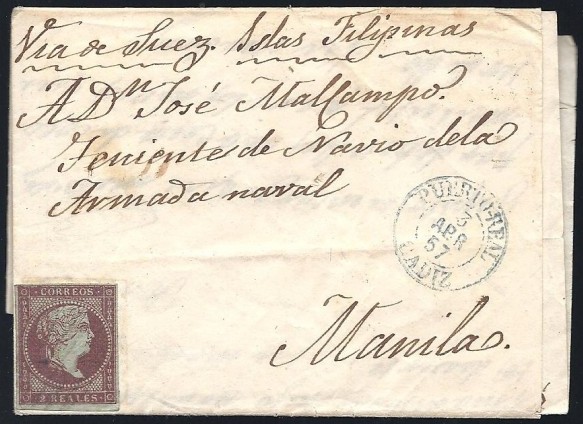 Via de Suez. Islas Filipinas
A Dⁿ José MalCampo.
Teniente de Navio dela
Armada naval
PUERTO-REAL
3
ABR
57
CADIZ
Manila.
CORREOS
2 REALES